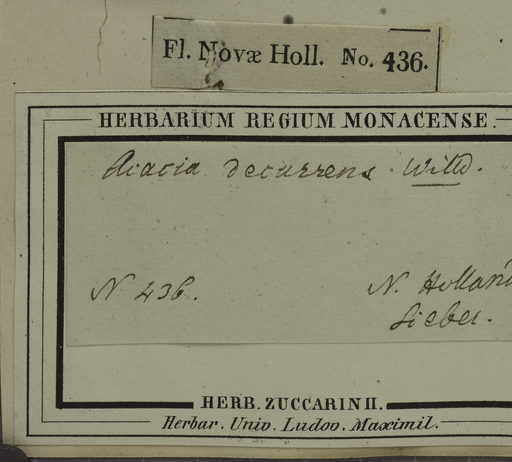 Fl. Novæ Holl. No. 436.
HERBARIUM REGIUM MONACENSE.
Acacia decurrens Willd.
N 436.
N. Holland
Sieber.
HERB. ZUCCARINII.
Herbar. Univ. Ludov. Maximil.